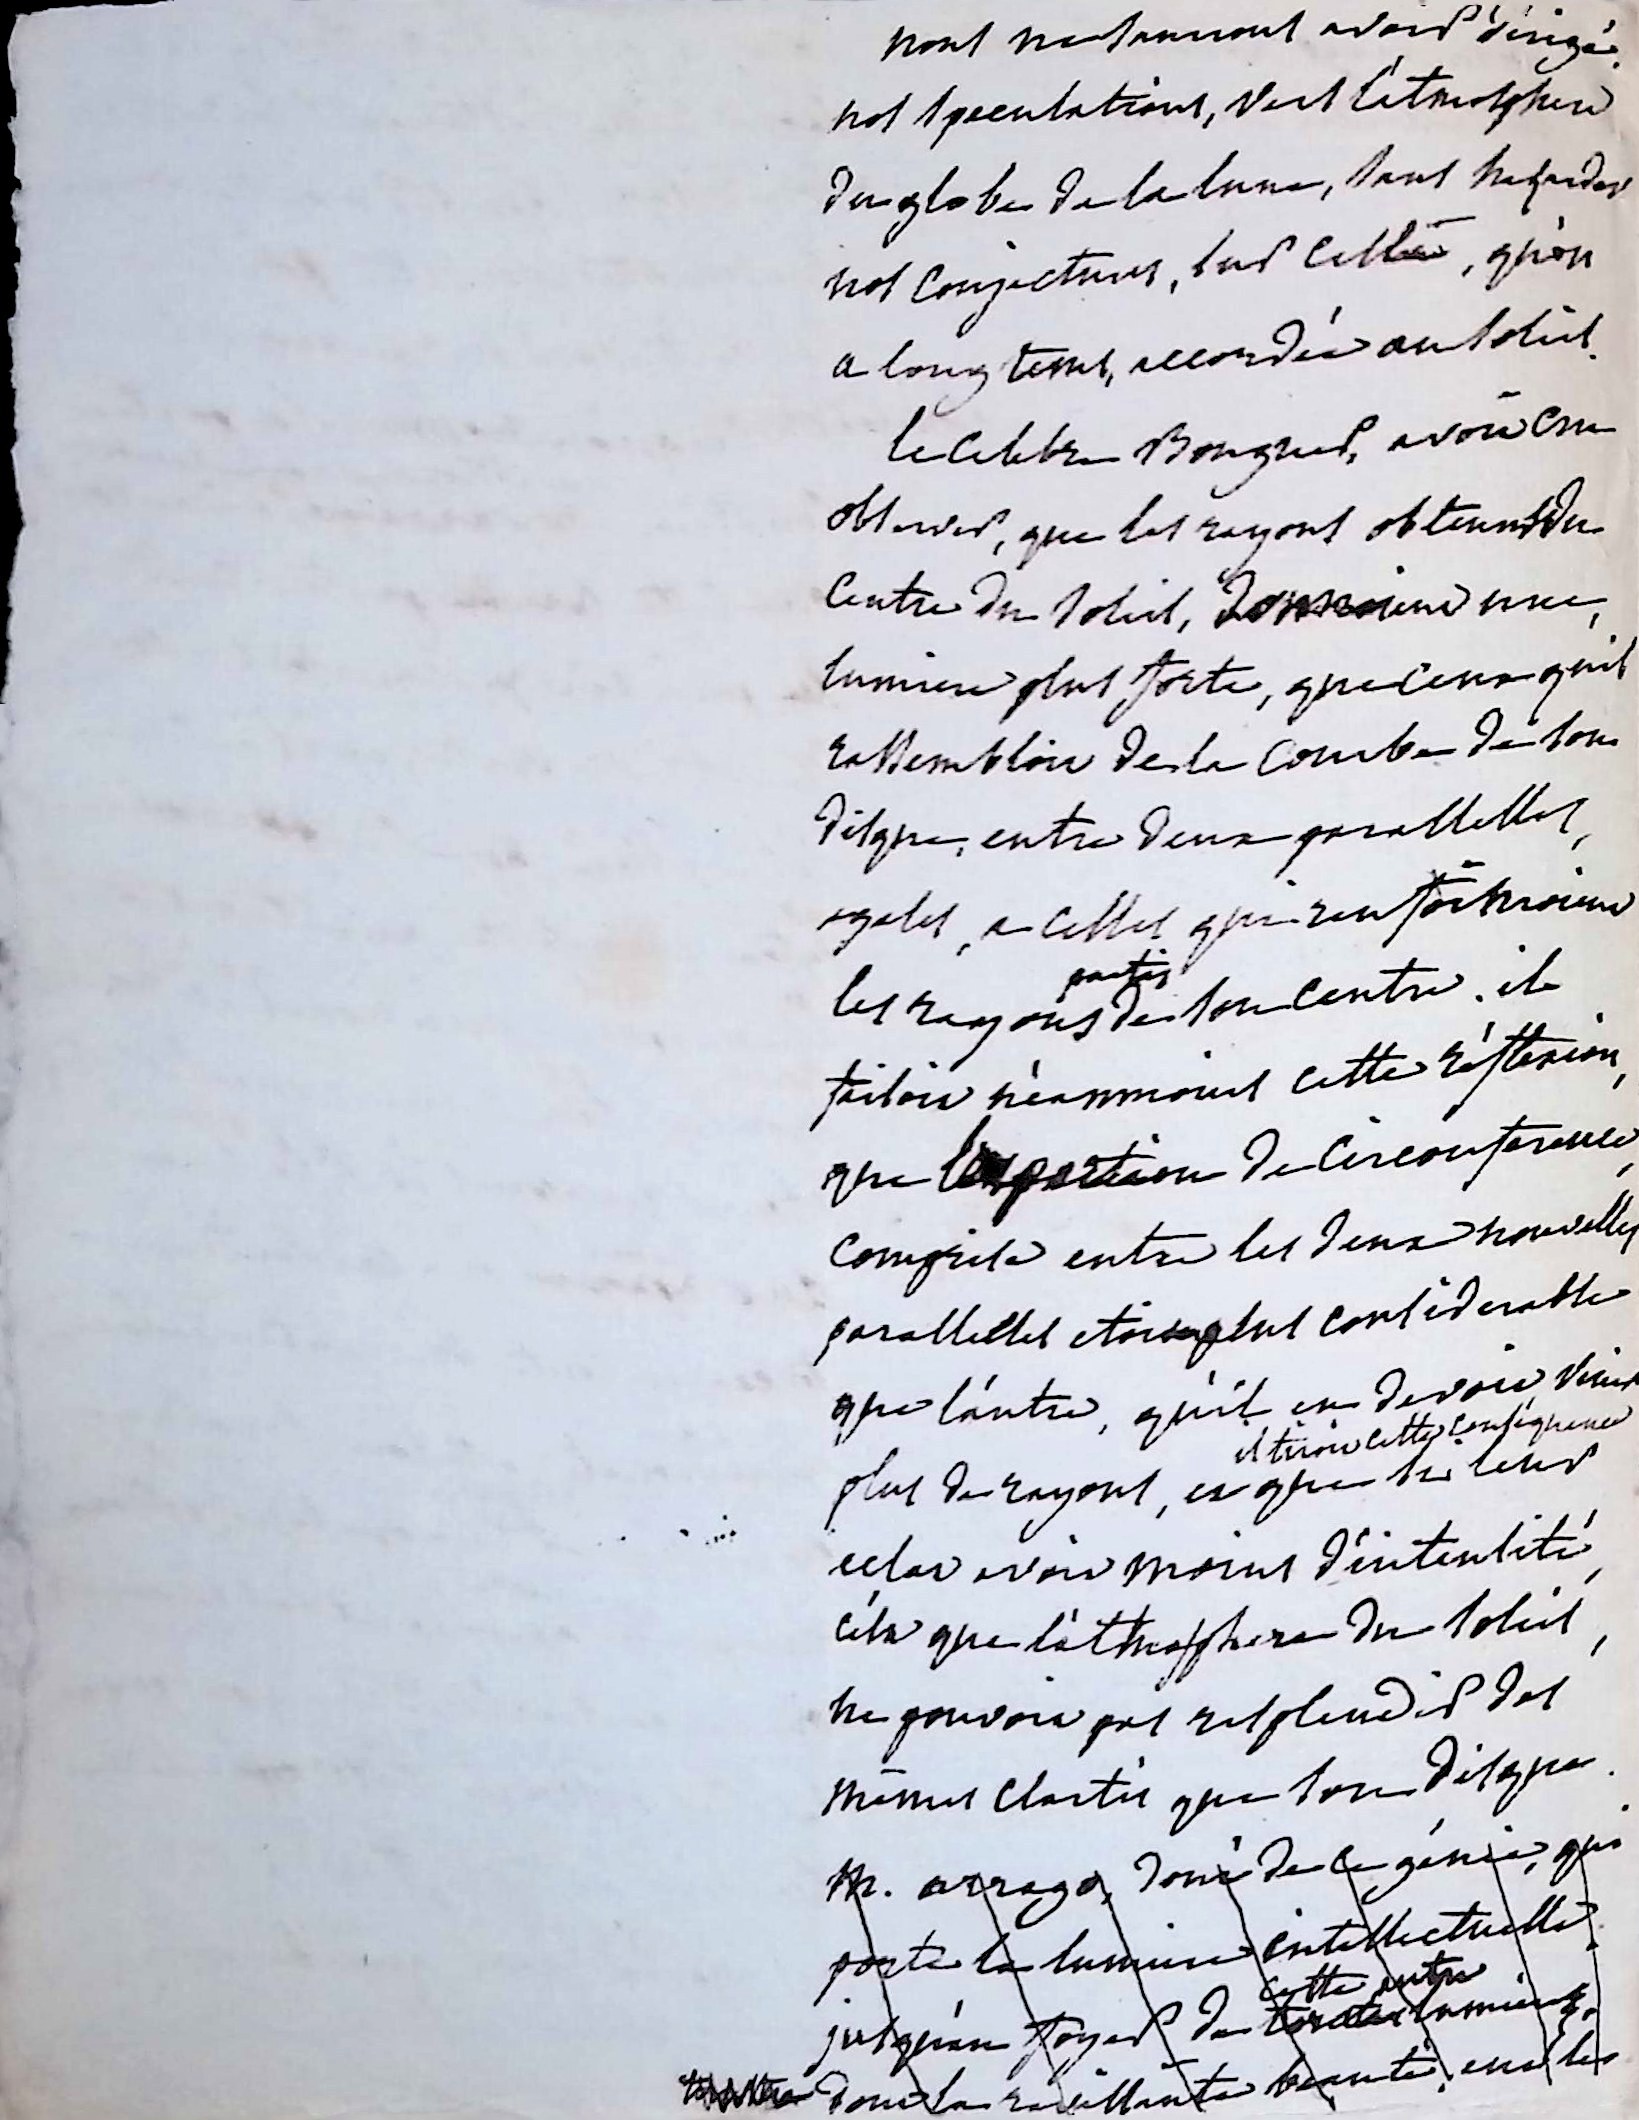 nous ne saurions avoir dirigé
nos speculations, vers l'atmosphere
du globe de la lune, sans hazarder
nos conjectures, sur celle, qu'on
a long tems, accordée au soleil.
le celebre Bouguer, avoit cru
observer, que les rayons obtenus du
centre du soleil, donnoient une,
lumiere plus forte, que ceux qu'il
rassembloit de la courbe de son
disque, entre deux paralleles,
egales, a celles qui renfermoient
les rayons partis de son centre. il
faisoit néanmoins cette réflexion,
que la portion de circonference,
comprise entre les deux nouvelles
paralleles etoit plus considerable
que l'autre, qu'il en devoit venir
il tiroit cette conséquence
plus de rayons, et que si leur
eclat avoit moins d'intensité,
c'est que l'atmosphere du soleil,
ne pouvoit pas resplendir des
mêmes clartés que son disque.
m. arrago, doué de ce génie, qui
porte la lumiere intellectuelle.
cette autre
jusqu'au foyer de lumiere,
dont la ravissante beauté, est les